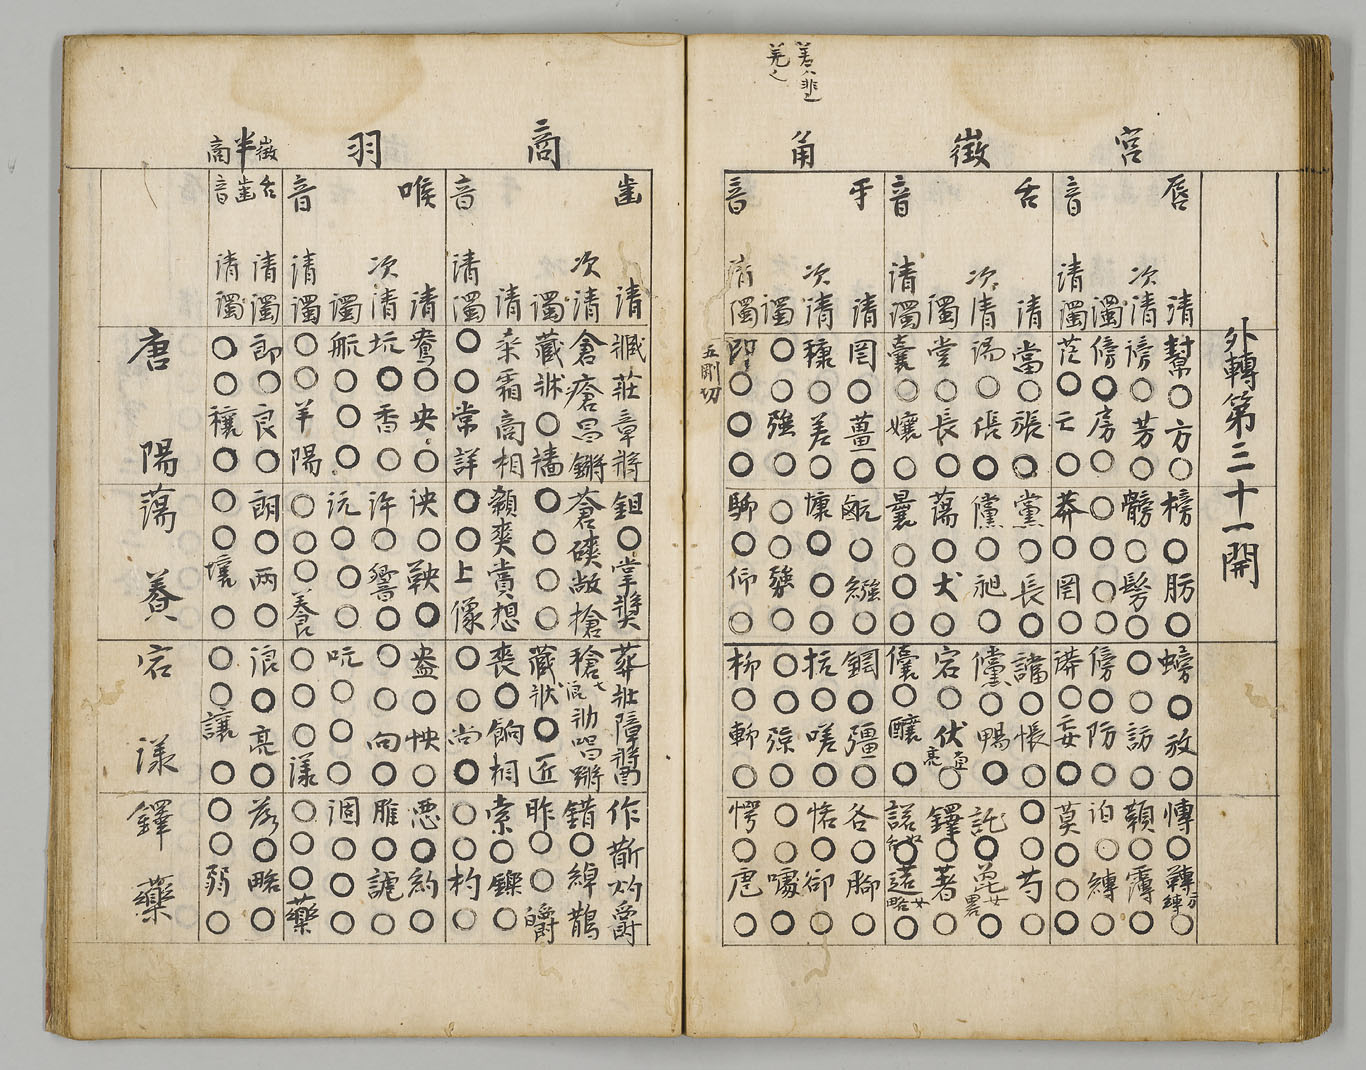 外轉第三十一開
宮
徵
角
脣音
舌音
牙音
清 幫○方○ 榜○昉○ 螃○放○ 愽○轉○
次清 滂○芳○ 髈○髣○ ○○訪○ ○薄○
濁 傍○房○ ○○○○ 傍○防○ 泊○縛○
清濁 茫○亡○ 莽○罔○ 漭○妄○ 莫○○○
清 當○張○ 黨○長○ 譡○帳○ ○○芍○
次清 湯○倀○ 儻○昶○ 儻○暢○ 託○
濁 堂○長○ 蕩○丈○ 宕○仗○ 鐸○著○
清濁 囊○孃○ 曩○○○ 儾○釀○ 諾○逽○
清 岡○薑○ 䴚○繈○ 鋼○彊○ 各○腳○
次清 穅○羌○ 慷○○○ 抗○唴○ 恪○卻○
濁 ○○強○ ○○勥○ ○○弶○ ○○噱○
清濁 卬○○○ 駠○仰○ 枊○䡊○ 愕○虐○
五剛切
商
羽
半徵商
齒音
喉音
舌齒音
清 臧莊章將 駔○掌獎 葬壯障將 作斮灼爵
次清 倉瘡昌鏘 蒼磢敞搶 槍創唱蹡 錯○綽鵲
濁 藏牀○牆 ○○○○ 藏狀○匠 昨○○嚼
清 桑霜商相 顙爽賞想 喪○餉相 索○鑠○
清濁 ○○常詳 ○○上像 ○○尚○ ○○杓○
清 鴦○央○ 坱○鞅○ 盎○怏○ 惡○約○
次清 炕○香○ 汻○響○ ○○向○ 臛○謔○
濁 航○○○ 沆○○○ 吭○○○ 涸○○○
清濁 ○○羊陽 ○○○養 ○○○漾 ○○○藥
清濁 郎○良○ 朗○兩○ 浪○亮○ 落○略○
清濁 ○○穰○ ○○壤○ ○○讓○ ○○弱○
唐 陽 蕩 養 宕 漾 鐸 藥